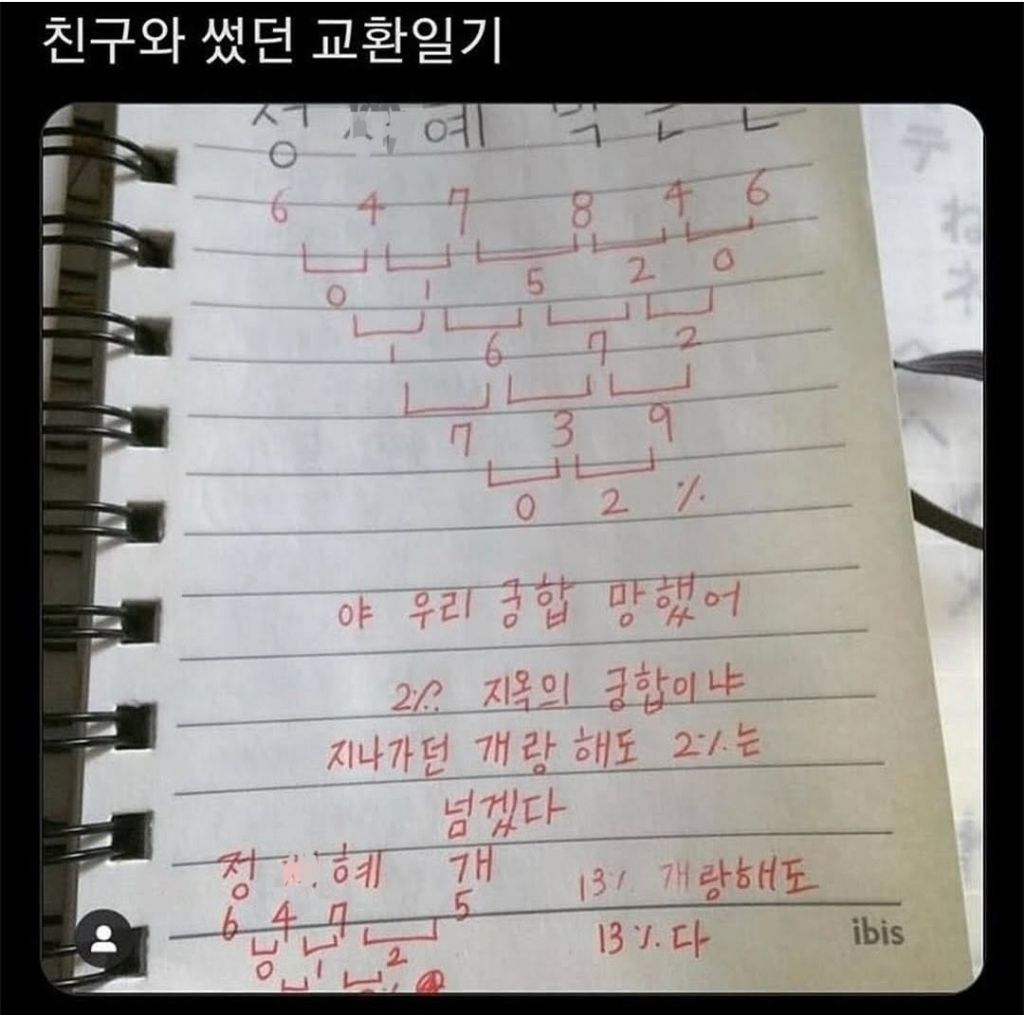 친구와 썼던 교환일기
6 4 7 8 4 6
0 1 5 2 0
1 6 7 2
7 3 9
0 2 %
야 우리 궁합 망했어
2%? 지옥의 궁합이냐
지나가던 개랑 해도 2%는
넘겠다
정 혜 개
6 4 7 5
0 1 2
13% 개랑해도
13%다
ibis